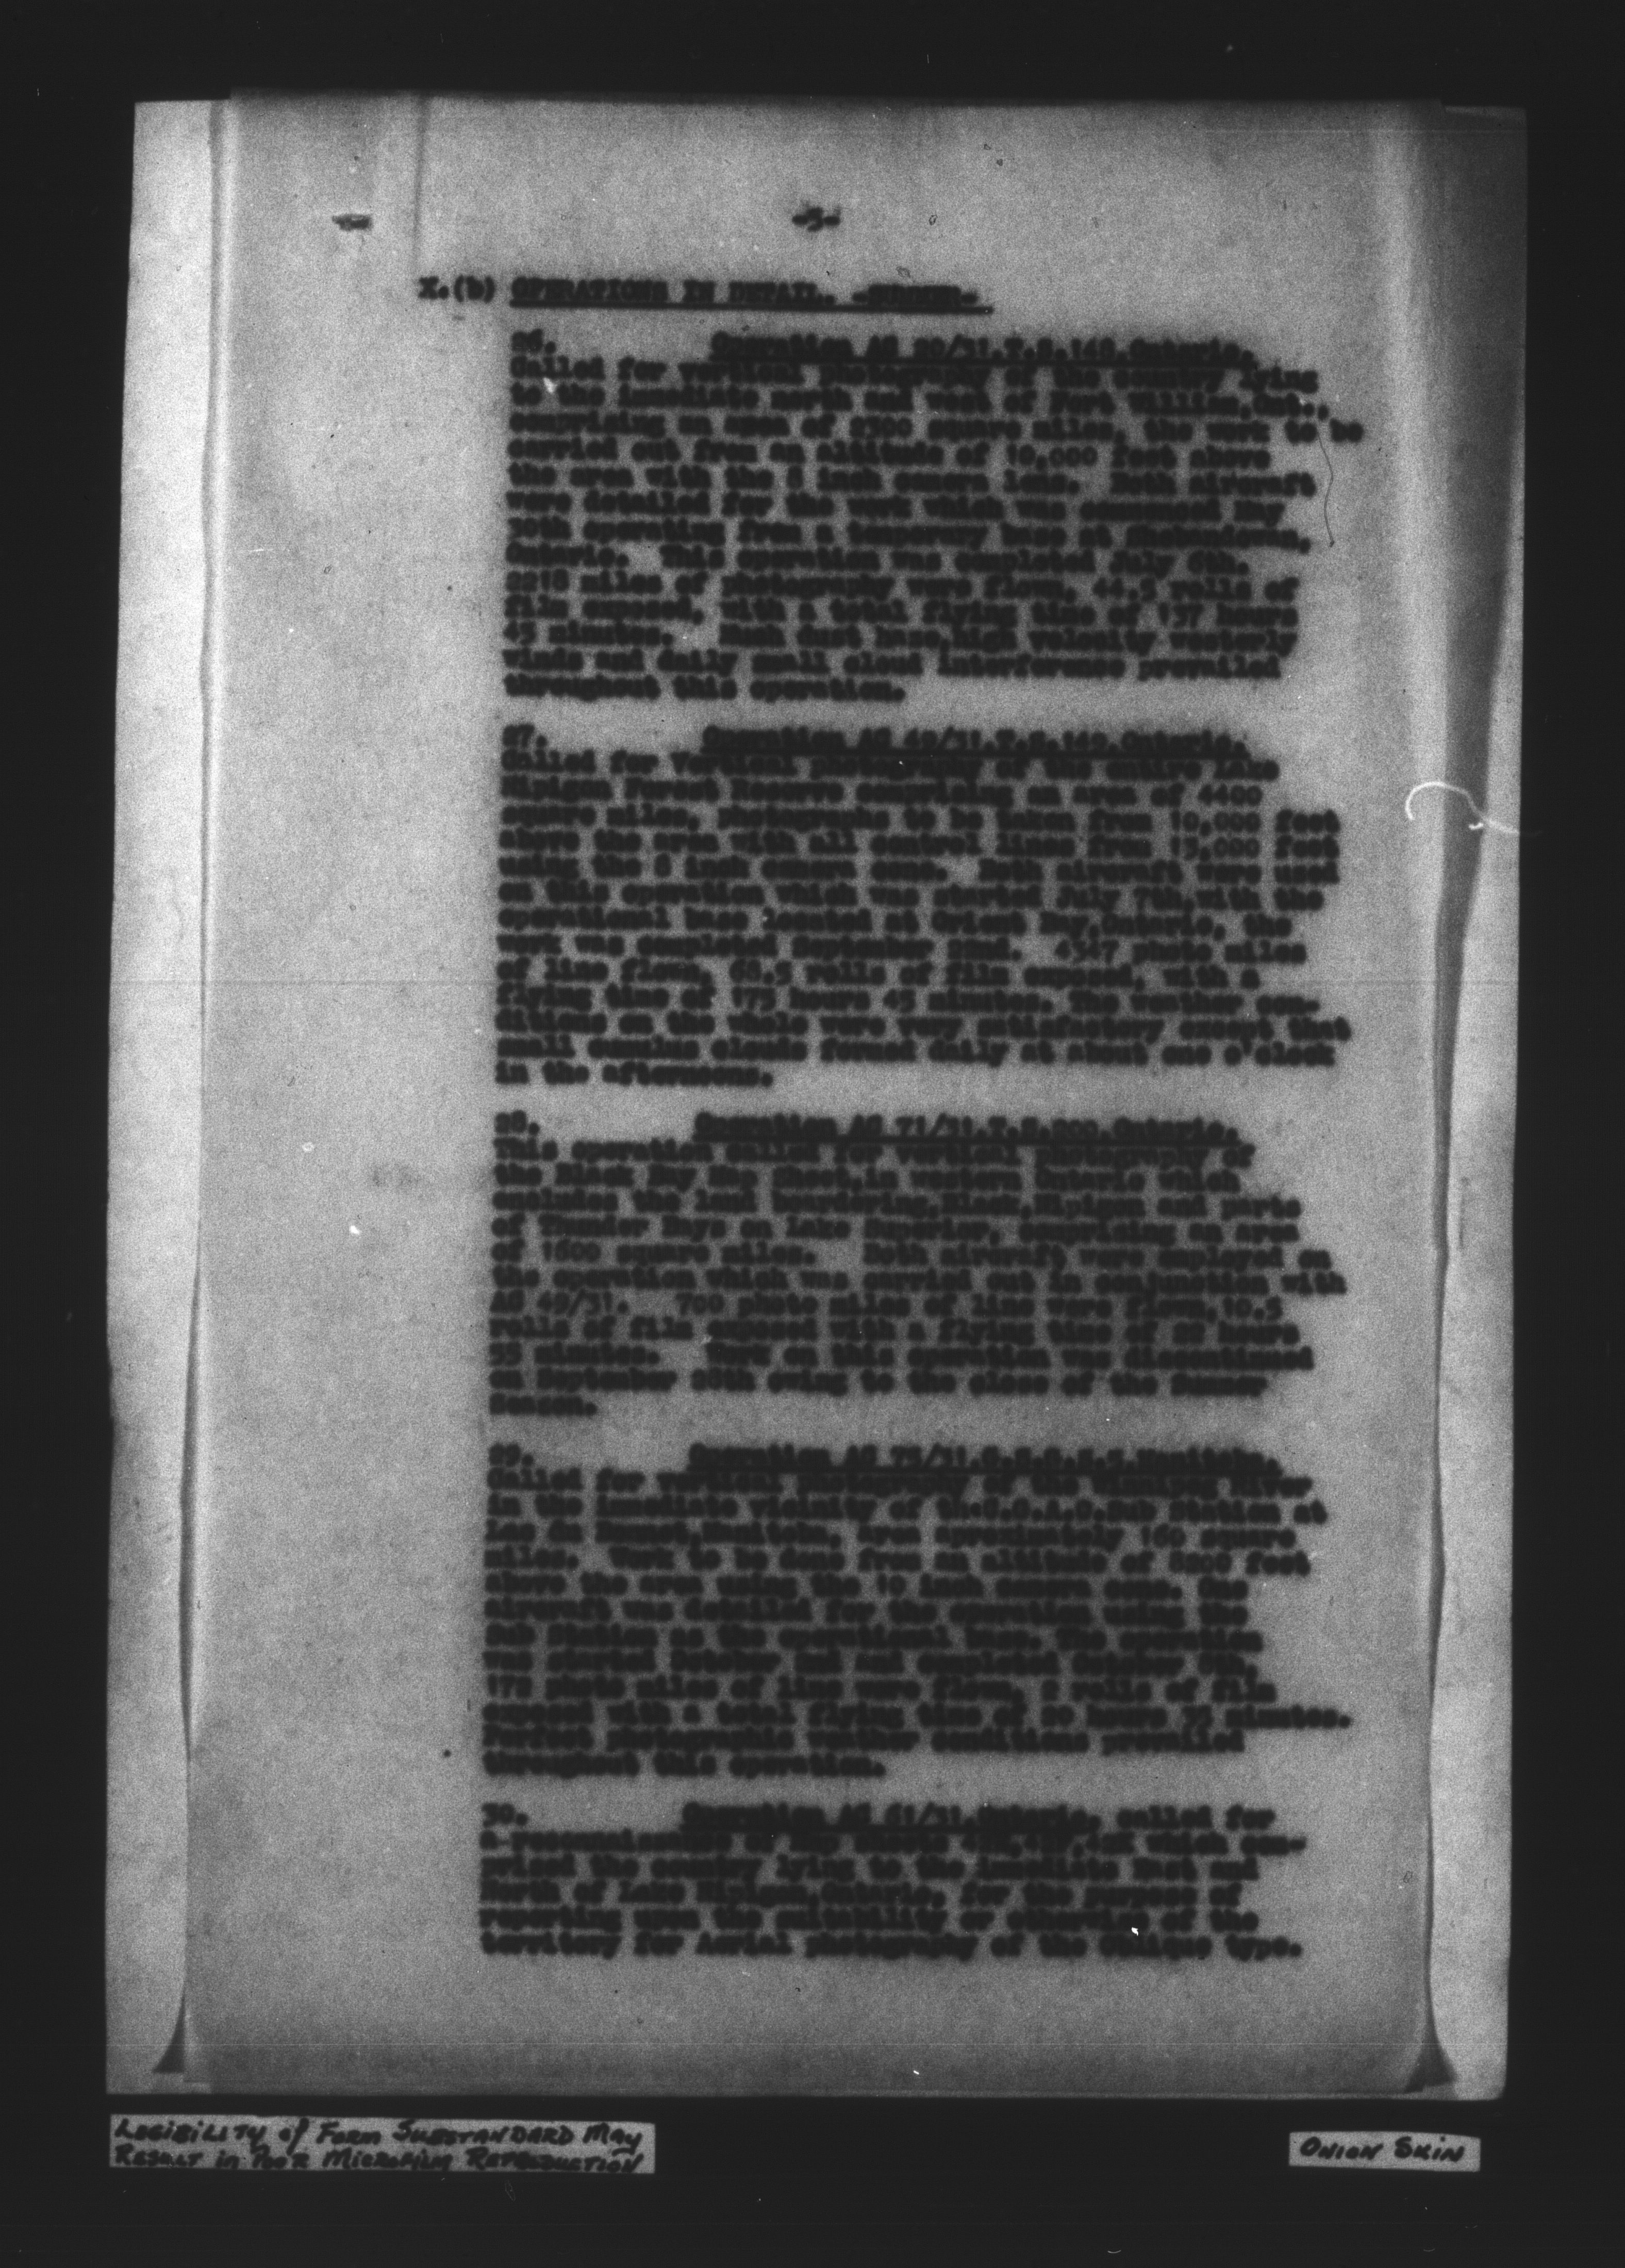 -5-
X.(b) OPERATIONS IN DETAIL. -SUMMER-
26. Operation AG 20/31.T.S.148.Ontario.
Called for vertical photography of the country lying
to the immediate north and west of Fort William,Ont.,
comprising an area of 2300 square miles, the work to be
carried out from an altitude of 10,000 feet above
the area with the 8 inch camera lens. Both aircraft
were detailed for the work which was commenced May
30th operating from a temporary base at
Ontario. This operation was completed July 6th.
2218 miles of photography were flown, 44.5 rolls of
film exposed, with a total flying time of 137 hours
45 minutes. Much dust haze,high velocity westerly
winds and daily small cloud interference prevailed
throughout this operation.
27. Operation AG 49/31.T.S.149.Ontario.
Called for Vertical photography of the entire Lake
Nipigon Forest Reserve comprising an area of 4400
square miles, photographs to be taken from 10,000 feet
above the area with all control lines from 15,000 feet
using the 8 inch camera cone. Both aircraft were used
on this operation which was started July 7th with the
operational base located at Orient Bay,Ontario, the
work was completed September 22nd. 4347 photo miles
of line flown, 68.5 rolls of film exposed, with a
flying time of 175 hours 45 minutes. The weather con-
ditions on the whole were very satisfactory except that
small cumulus clouds formed daily at about one o'clock
in the afternoons.
28. Operation AG 71/31.T.S.200.Ontario.
This operation called for vertical photography of
the Black Bay Map Sheet,in western Ontario which
contains the land bordering,Black,Nipigon and parts
of Thunder Bays on Lake Superior, comprising an area
of 1600 square miles. Both aircraft were employed on
the operation which was carried out in conjunction with
AG 49/31. 700 photo miles of line were flown,10.5
rolls of film exposed with a flying time of 22 hours
minutes. Work on this operation was discontinued
on September 28th owing to the close of the Summer
Season.
29. Operation AG 75/31. Manitoba.
Called for vertical photography of the Winnipeg River
in the immediate vicinity of the Sub Station at
Lac du Bonnet,Manitoba, Area approximately 160 square
miles. Work to be done from an altitude of 5000 feet
above the area using the 10 inch camera cone. One
aircraft was detailed for the operation using the
Sub Station as the operational base. The operation
was started October and completed October
172 photo miles of line were flown, 2 rolls of film
exposed with a total flying time of 20 hours 35 minutes.
Perfect photographic weather conditions prevailed
throughout this operation.
30. Operation AG 61/31.Ontario. called for
a reconnaissance of Map Sheets which com-
prised the country lying to the immediate East and
North of Lake Nipigon,Ontario, for the purpose of
reporting upon the suitability or otherwise of the
territory for Aerial photography of the Oblique type.
LEGIBILITY of FORM SUBSTANDARD MAY
RESULT in POOR MICROFILM REPRODUCTION
ONION SKIN